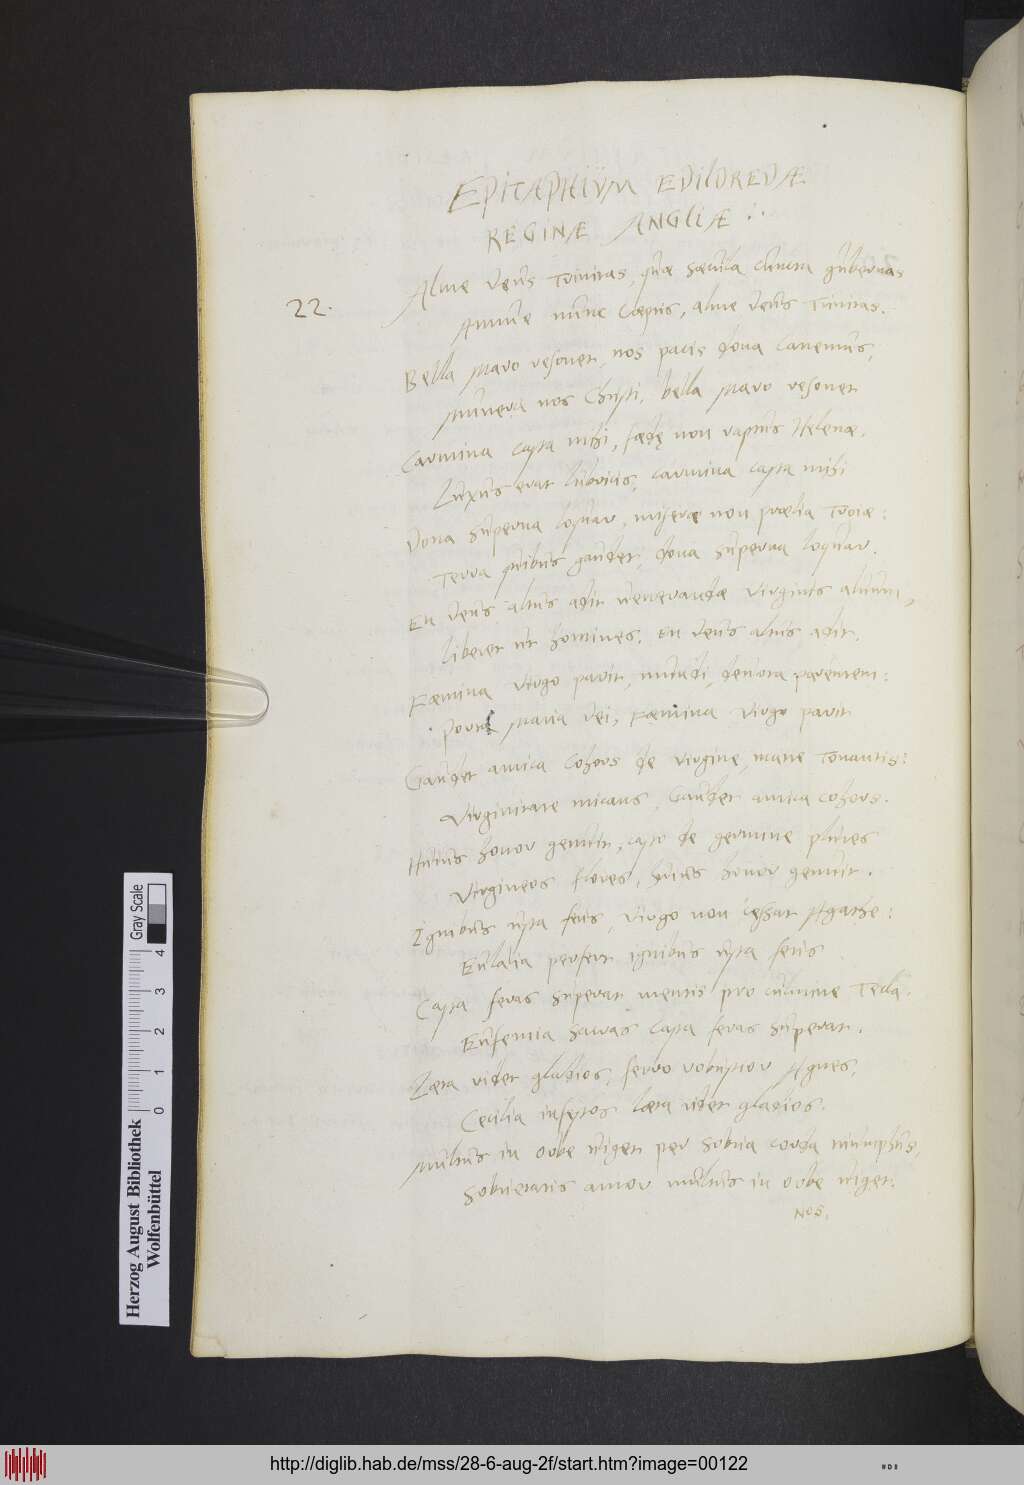 EPITAPHIUM EDILDREDÆ
REGINÆ ANGLIÆ :.
22.
Alme deus Trinitas, quæ sæcula cuncta gubernas
Annue nunc cæptis, alme deus Trinitas.
Bella Maro resonet, nos pacis dona canemus,
Munera nos Christi, bella Maro resonet
Carmina casta mihi, fædę non raptus Helenæ.
Luxus erat lubricis, carmina casta mihi
Dona superna loquar, miseræ non prælia Troiæ:
Terra quibus gaudet, dona superna loquar.
En deus altus adit venerandæ virginis alvum,
Liberet ut homines. En deus altus adit.
Fæmina virgo parit, mundi, devota parentem:
Porta Maria dei, fæmina virgo parit
Gaudet amica cohors de virgine, matre tonantis:
Virginitate micans, Gaudet amica cohors.
Huius honor genuit, casto de germine plures
Virgineos flores, huius honor genuit.
Ignibus usta feris, virgo non cessat Agathe:
Eulalia perfert ignibus usta feris
Casta feras superat mentis pro culmine Tecla.
Eufemia sacras casta feras superat.
Læta videt gladios, ferro robustior Agnes,
Cecilia infestos læta videt gladios.
Multus in orbe viget per sobria corda triumphus,
Sobrietatis amor multus in orbe viget.
Nos.
Gray Scale
0 1 2 3 4
Herzog August Bibliothek
Wolfenbüttel
http://diglib.hab.de/mss/28-6-aug-2f/start.htm?image=00122